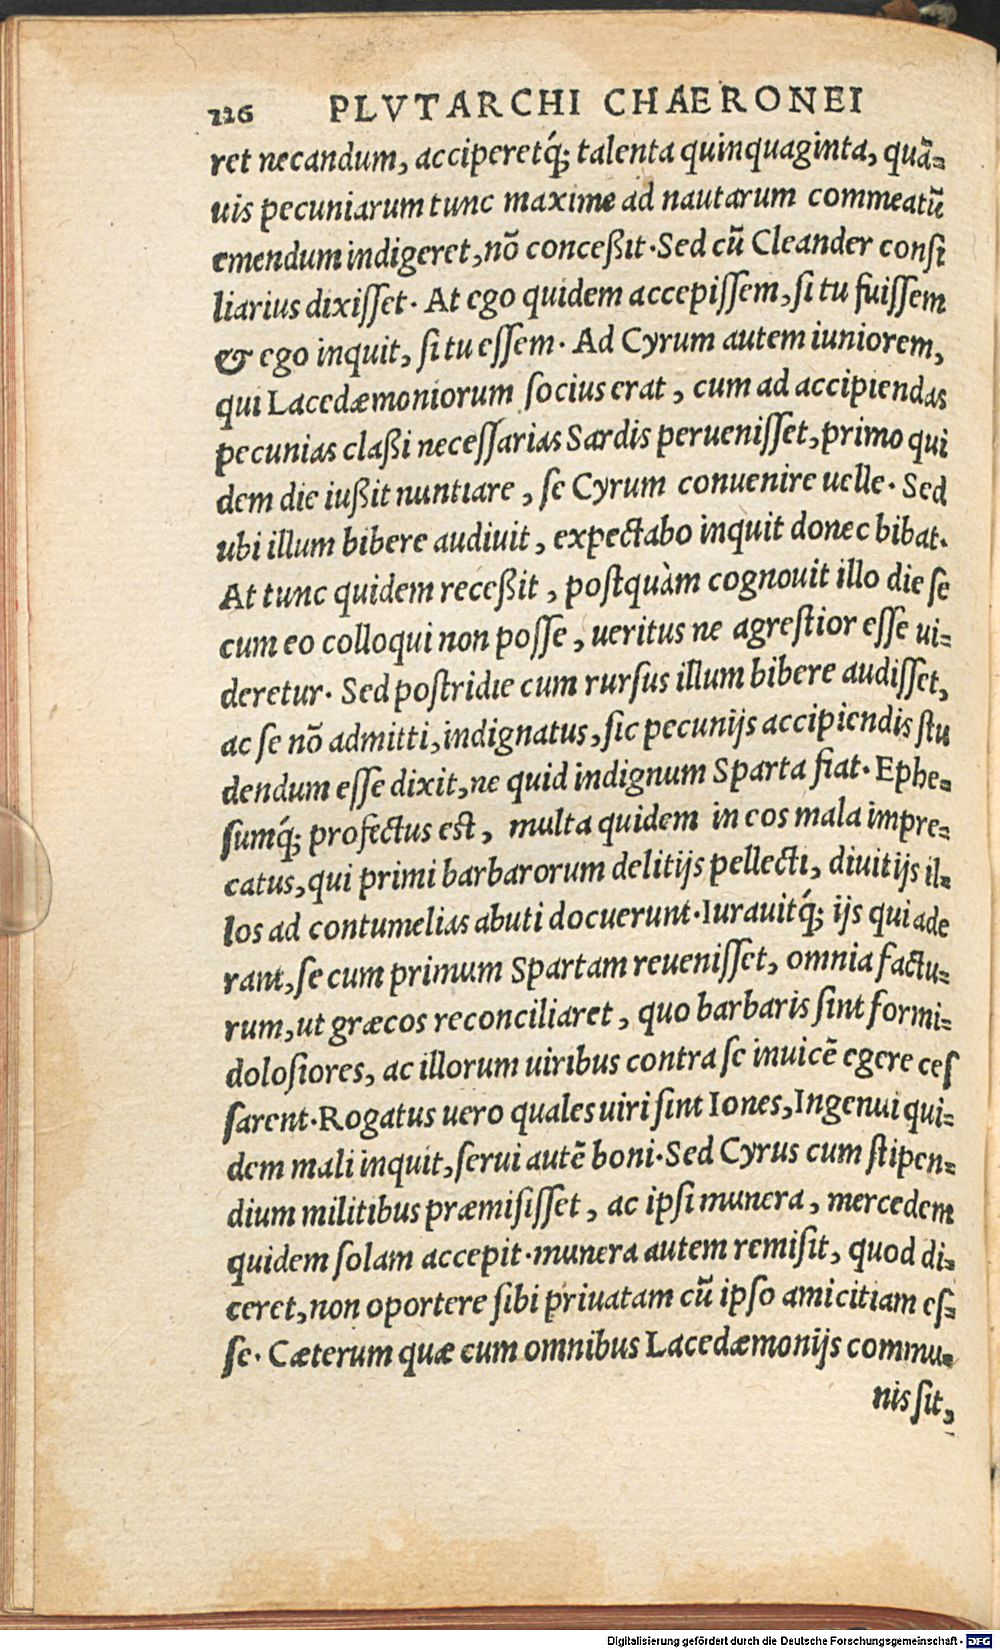 226 PLVTARCHI CHAERONEI
ret necandum, acciperetq́; talenta quinquaginta, quã-
uis pecuniarum tunc maxime ad nautarum commeatũ
emendum indigeret, nõ conceßit. Sed cũ Cleander consi
liarius dixisset. At ego quidem accepissem, si tu fuissem
& ego inquit, si tu essem. Ad Cyrum autem iuniorem,
qui Lacedæmoniorum socius erat, cum ad accipiendas
pecunias claßi necessarias Sardis peruenisset, primo qui
dem die iußit nuntiare, se Cyrum conuenire uelle. Sed
ubi illum bibere audiuit, expectabo inquit donec bibat.
At tunc quidem receßit, postquàm cognouit illo die se
cum eo colloqui non posse, ueritus ne agrestior esse ui-
deretur. Sed postridie cum rursus illum bibere audisset,
ac se nõ admitti, indignatus, sic pecunijs accipiendis stu
dendum esse dixit, ne quid indignum Sparta fiat. Ephe-
sumq́; profectus est, multa quidem in eos mala impre-
catus, qui primi barbarorum delitijs pellecti, diuitijs il-
los ad contumelias abuti docuerunt. Iurauitq́; ijs qui ade
rant, se cum primum Spartam reuenisset, omnia factu-
rum, ut græcos reconciliaret, quo barbaris sint formi-
dolosiores, ac illorum uiribus contra se inuicẽ egere ces
sarent. Rogatus uero quales uiri sint Iones, Ingenui qui-
dem mali inquit, serui autẽ boni. Sed Cyrus cum stipen-
dium militibus præmisisset, ac ipsi munera, mercedem
quidem solam accepit. munera autem remisit, quod di-
ceret, non oportere sibi priuatam cũ ipso amicitiam es-
se. Cæterum quæ cum omnibus Lacedæmonijs commu-
nis sit,
Digitalisierung gefördert durch die Deutsche Forschungsgemeinschaft - DFG